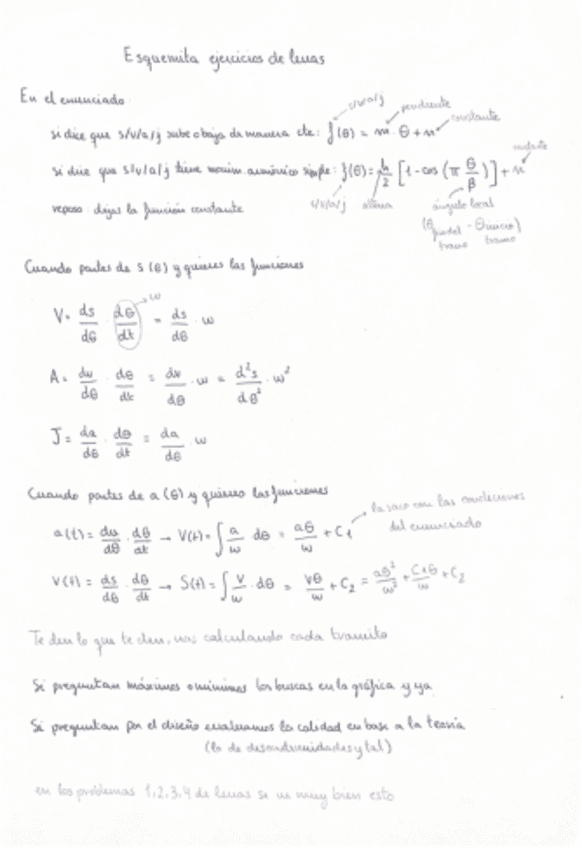 Esquemita ejercicios de levas
En el enunciado
si dice que s/v/a/j sube o baja de manera cte: f(θ) = m · θ + n
s/v/a/j
pendiente
constante
si dice que s/v/a/j tiene movim. armónico simple: f(θ) = h/2 [1 - cos (π θ/β)] + n
s/v/a/j
altura
ángulo local
(θ final tramo - θ inicio tramo)
reposo: dejas la función constante
Cuando partes de S(θ) y quieres las funciones
V = ds/dθ · dθ/dt = ds/dθ · w
w
A = dv/dθ · dθ/dt = dv/dθ · w = d²s/dθ² · w²
J = da/dθ · dθ/dt = da/dθ · w
Cuando partes de a(θ) y quieres las funciones
a(t) = dv/dθ · dθ/dt → V(t) = ∫ a/w dθ = aθ/w + C1
la saco con las condiciones
del enunciado
V(t) = ds/dθ · dθ/dt → S(t) = ∫ V/w · dθ = Vθ/w + C2 = aθ²/w² + C1θ/w + C2
Te den lo que te den, vas calculando cada tramito
Si preguntan máximos o mínimos los buscas en la gráfica y ya
Si preguntan por el diseño evaluamos la calidad en base a la teoría
(lo de discontinuidades y tal)
en los problemas 1,2,3,4 de levas se ve muy bien esto